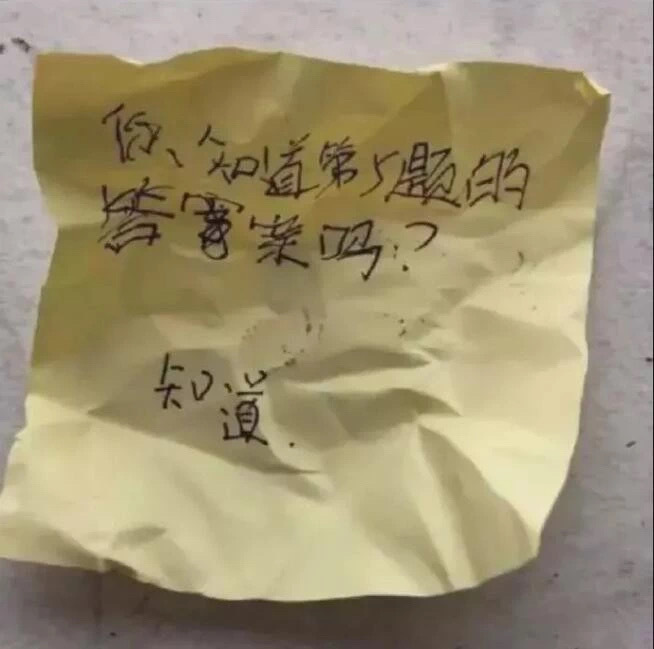 你、知道第5题的
答案吗?
知
道.